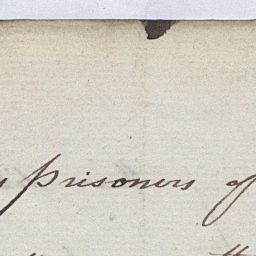 prisoners of